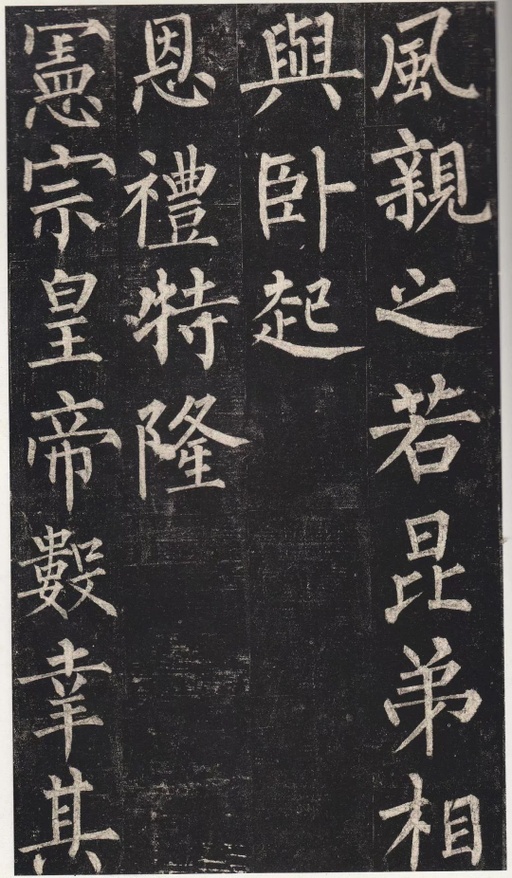 風親之若昆弟相
與卧起
恩禮特隆
憲宗皇帝數幸其